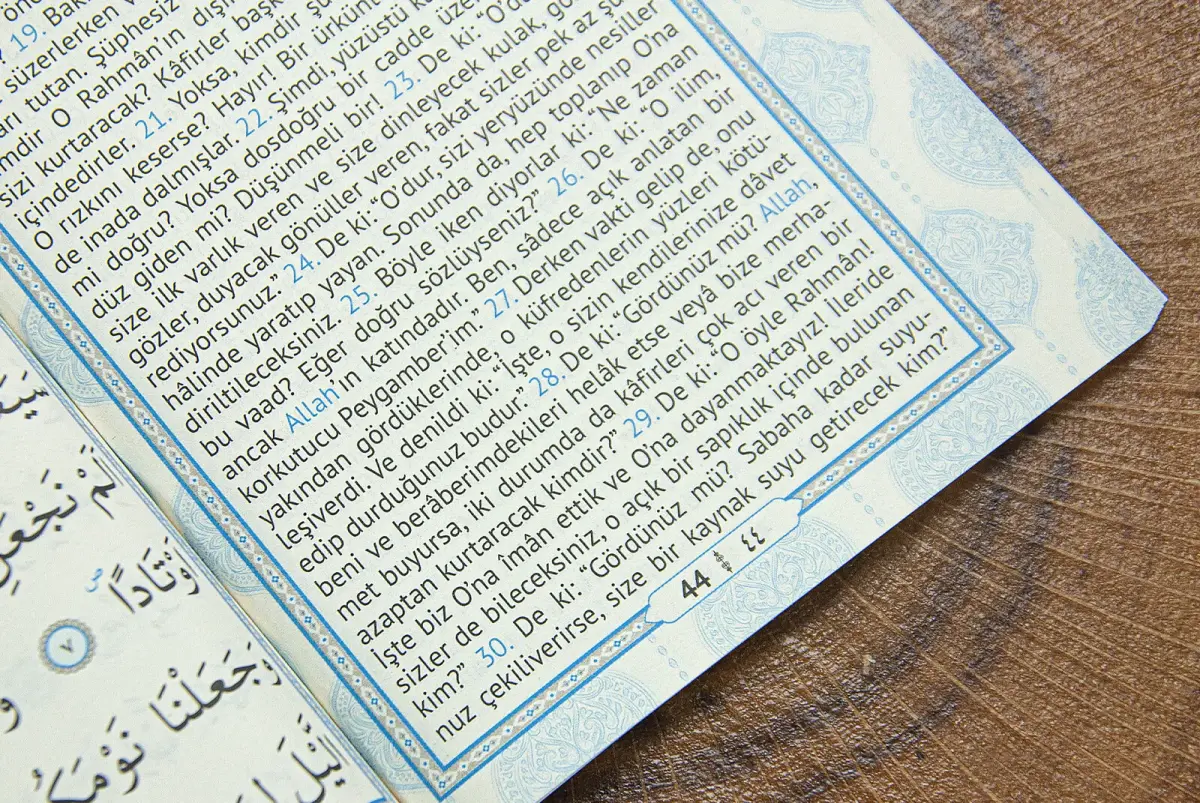 19. Bak
süzerlerken
tutan. Şüphesiz
O Rahmân'ın
sizi kurtaracak? Kâfirler
içindedirler. 21. Yoksa, kimdir
O rızkını keserse? Hayır! Bir
de inada dalmışlar. 22. Şimdi, yüzüstü
mi doğru? Yoksa dosdoğru bir cadde
düz giden mi? Düşünmeli bir! 23. De ki: “O'du
size ilk varlık veren ve size dinleyecek kulak,
gözler, duyacak gönüller veren, fakat sizler pek az şü
rediyorsunuz.” 24. De ki: “O'dur, sizi yeryüzünde nesiller
hâlinde yaratıp yayan. Sonunda da, hep toplanıp Ona
diriltileceksiniz. 25. Böyle iken diyorlar ki: “Ne zaman
bu vaad? Eğer doğru sözlüyseniz?” 26. De ki: “O ilim,
ancak Allah'ın katındadır. Ben, sâdece açık anlatan bir
korkutucu Peygamber'im.” 27. Derken vakti gelip de, onu
yakından gördüklerinde, o küfredenlerin yüzleri kötü-
leşiverdi. Ve denildi ki: “İşte, o sizin kendilerinize dâvet
edip durduğunuz budur.” 28. De ki: “Gördünüz mü? Allah,
beni ve berâberimdekileri helâk etse veyâ bize merha-
met buyursa, iki durumda da kâfirleri çok acı veren bir
azaptan kurtaracak kimdir?” 29. De ki: “O öyle Rahmân!
İşte biz O'na îmân ettik ve O'na dayanmaktayız! İleride
sizler de bileceksiniz, o açık bir sapıklık içinde bulunan
kim?” 30. De ki: “Gördünüz mü? Sabaha kadar suyu-
nuz çekiliverirse, size bir kaynak suyu getirecek kim?”
44 ٤٤
لَمْ نَجْعَلِ
وْتَادًا ۖ ٧
وَجَعَلْنَا نَوْمَكُ
الَّيْلَ